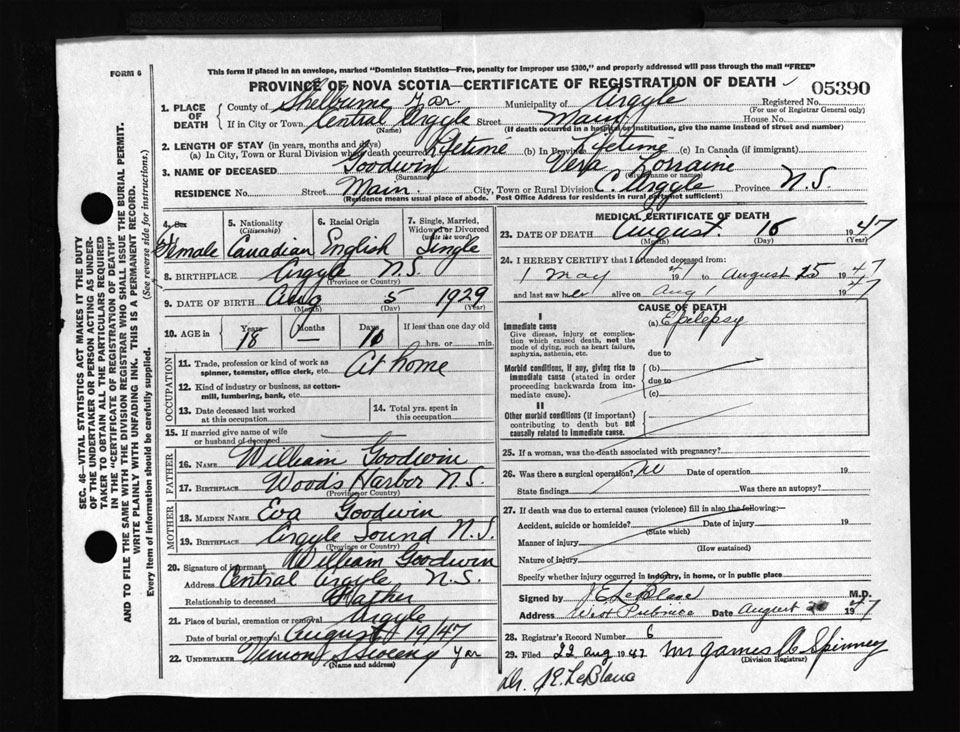 FORM 6
This form if placed in an envelope, marked "Dominion Statistics—Free, penalty for improper use $300," and properly addressed will pass through the mail "FREE"
PROVINCE OF NOVA SCOTIA—CERTIFICATE OF REGISTRATION OF DEATH
05390
1. PLACE OF DEATH
County of Shelburne Yar. Municipality of Argyle Registered No.
(For use of Registrar General only)
If in City or Town Central Argyle Street Main House No.
(Name) (If death occurred in a hospital or institution, give the name instead of street and number)
2. LENGTH OF STAY (in years, months and days)
(a) In City, Town or Rural Division where death occurred Lifetime (b) In Province Lifetime (c) In Canada (if immigrant)
3. NAME OF DECEASED Goodwin Vera Lorraine
(Surname) (Given name or names)
RESIDENCE No. Street Main. City, Town or Rural Division C. Argyle Province N.S.
(Residence means usual place of abode. Post Office Address for residents in rural parts not sufficient)
4. Sex Female
5. Nationality (Citizenship) Canadian
6. Racial Origin English
7. Single, Married, Widowed or Divorced (write the word) Single
8. BIRTHPLACE Argyle N.S.
(Province or Country)
9. DATE OF BIRTH Aug 5 1929
(Month) (Day) (Year)
10. AGE in Years 18 Months — Days 10 If less than one day old
hrs. or min.
OCCUPATION
11. Trade, profession or kind of work as spinner, teamster, office clerk, etc. At home
12. Kind of industry or business, as cotton-mill, lumbering, bank, etc.
13. Date deceased last worked at this occupation
14. Total yrs. spent in this occupation
15. If married give name of wife or husband of deceased
FATHER
16. NAME William Goodwin
17. BIRTHPLACE Woods Harbor N.S.
(Province or Country)
MOTHER
18. MAIDEN NAME Eva Goodwin
19. BIRTHPLACE Argyle Sound N.S.
(Province or Country)
20. Signature of informant William Goodwin
Address Central Argyle N.S.
Relationship to deceased Father
21. Place of burial, cremation or removal Argyle
Date of burial or removal August 19/47
22. UNDERTAKER Vernon Yar
(Name and address)
MEDICAL CERTIFICATE OF DEATH
23. DATE OF DEATH August. 16 1947
(Month) (Day) (Year)
24. I HEREBY CERTIFY that I attended deceased from:
1 May 47 to August 15 1947
and last saw her alive on Aug 1 1947
CAUSE OF DEATH
I
Immediate cause (a) Epilepsy
Give disease, injury or complication which caused death, not the mode of dying, such as heart failure, asphyxia, asthenia, etc.
due to
Morbid conditions, if any, giving rise to immediate cause (stated in order proceeding backwards from immediate cause).
(b)
due to
(c)
II
Other morbid conditions (if important) contributing to death but not causally related to immediate cause.
25. If a woman, was the death associated with pregnancy?
26. Was there a surgical operation? No Date of operation 19
State findings Was there an autopsy?
27. If death was due to external causes (violence) fill in also the following:—
Accident, suicide or homicide? Date of injury 19
(State which)
Manner of injury
(How sustained)
Nature of injury
Specify whether injury occurred in industry, in home, or in public place
Signed by J E LeBlanc M.D.
Address West Pubnico Date August 1947
28. Registrar's Record Number 6
29. Filed 22 Aug 1947 Mr James A Spinney
(Division Registrar)
Dr. J E LeBlanc
SEC. 46—VITAL STATISTICS ACT MAKES IT THE DUTY
OF THE UNDERTAKER OR PERSON ACTING AS UNDER-
TAKER TO OBTAIN ALL THE PARTICULARS REQUIRED
IN THE "CERTIFICATE OF REGISTRATION OF DEATH"
AND TO FILE THE SAME WITH THE DIVISION REGISTRAR WHO SHALL ISSUE THE BURIAL PERMIT.
WRITE PLAINLY WITH UNFADING INK. THIS IS A PERMANENT RECORD.
Every item of information should be carefully supplied. (See reverse side for instructions.)